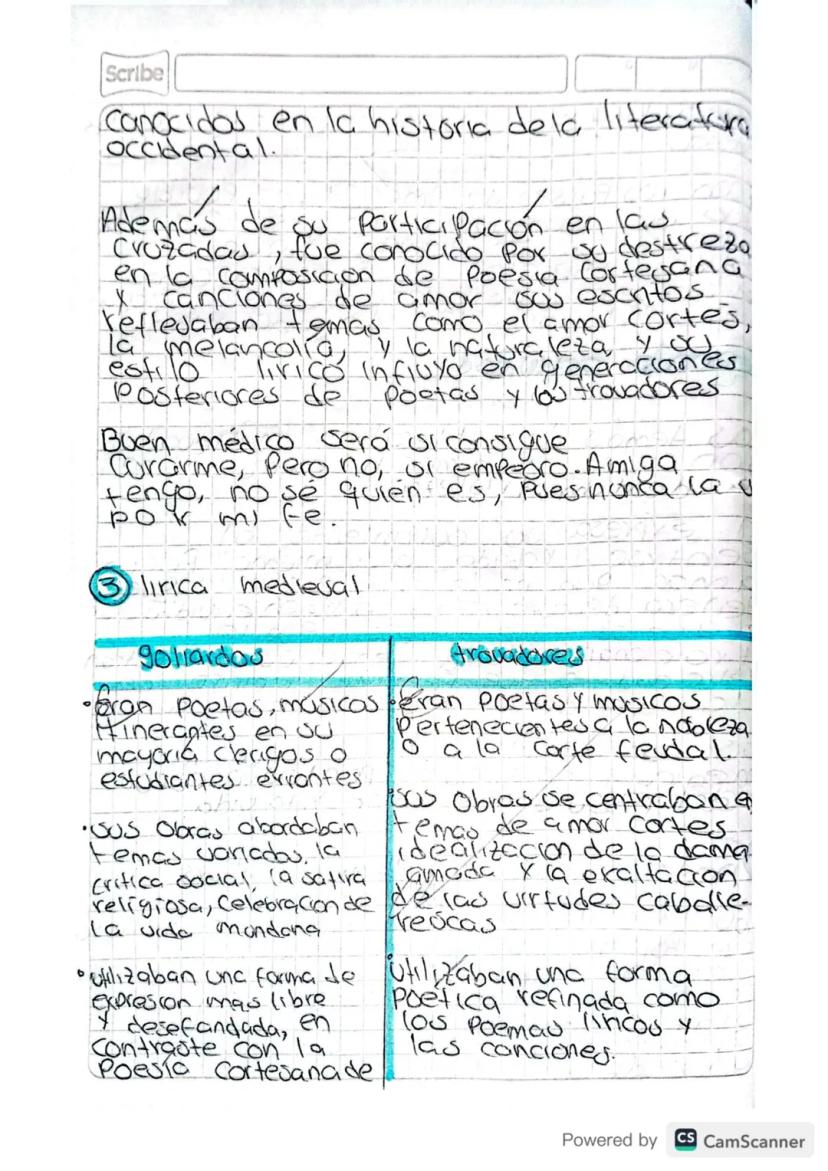 Scribe
conocidos en la historia dela literatura
occidental.
Además de su participación en las
cruzadas, fue conocido por su destreza
en la composicion de poesia cortesana
y canciones de amor sus escritos
reflejaban temas como el amor cortés,
la melancolía, y la naturaleza, y su
estilo lirico influyo en generacciones
posteriores de poetas y los trovadores
Buen médico será si consigue
curarme, pero no, si empeoro. Amiga
tengo, no sé quién es, pues nunca la
por mi fe.
3 lirica medieval
goliardos
trovadores
• Eran poetas, músicos
itinerantes en su
mayoría clerigos o
estudiantes errantes
• sus obras abordaban
temas variados, la
critica social, la satira
religiosa, celebracion de
la vida mundana
• utilizaban una forma de
expresion mas libre
y desefandada, en
contraste con la
poesía cortesana de
• Eran poetas y musicos
pertenecientes a la nobleza
o a la corte feudal.
• sus obras se centraban
temas de amor cortes
idealizacion de la dama
amada y la exaltacion
de las virtudes caballe-
rescas
• Utilizaban una forma
poética refinada como
los poemas liricos y
las canciones.
Powered by CS CamScanner